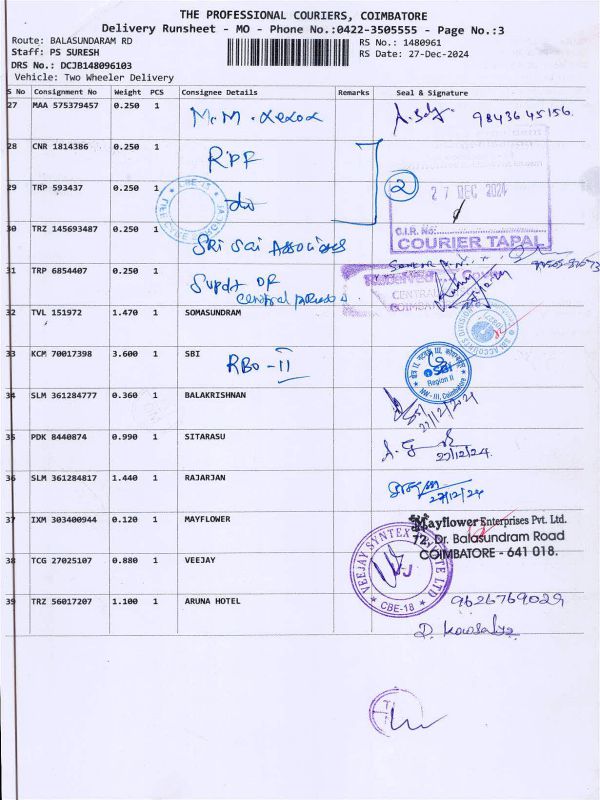 THE PROFESSIONAL COURIERS, COIMBATORE
Delivery Runsheet - MO - Phone No.:0422-3505555 - Page No.:3
Route: BALASUNDARAM RD
Staff: PS SURESH
DRS No.: DCJB148096103
Vehicle: Two Wheeler Delivery
RS No.: 1480961
RS Date: 27-Dec-2024
S No Consignment No Weight PCS Consignee Details Remarks Seal & Signature
27 MAA 575379457 0.250 1 9843645156
28 CNR 1814386 0.250 1 RPF
29 TRP 593437 0.250 1 do 2 27 DEC 2024
CBE-17
C.I.R. No:
COURIER TAPAL
30 TRZ 145693487 0.250 1 Sri Sai Associates
31 TRP 6854407 0.250 1 Supdt OF
central prison
Received
CENTRAL
COIMBATORE
32 TVL 151972 1.470 1 SOMASUNDRAM
33 KCM 70017398 3.600 1 SBI RBO-II
SBI
Region II
NW-III, Coimbatore
34 SLM 361284777 0.360 1 BALAKRISHNAN 27/12/2024
35 PDK 8440874 0.990 1 SITARASU 27/12/24
36 SLM 361284817 1.440 1 RAJARJAN 27/12/24
37 IXM 303400944 0.120 1 MAYFLOWER
Mayflower Enterprises Pvt. Ltd.
72, Dr. Balasundram Road
COIMBATORE - 641 018.
38 TCG 27025107 0.880 1 VEEJAY
VEEJAY SYNTEX PRIVATE LTD
VJ
CBE-18
39 TRZ 56017207 1.100 1 ARUNA HOTEL 9626769029
D. Kowsalya